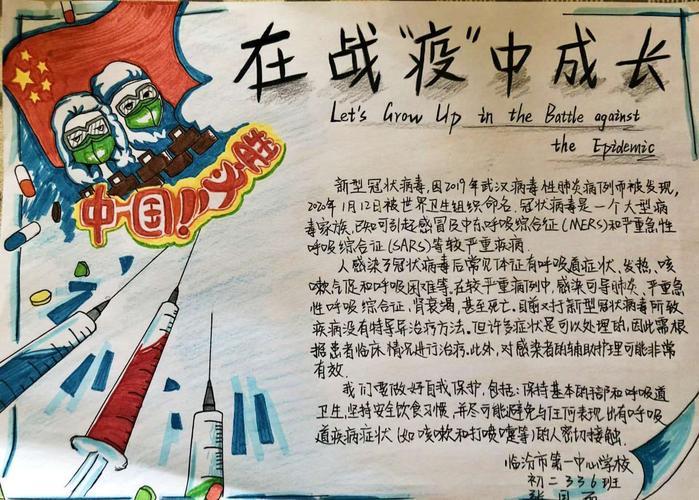 在战"疫"中成长
Let's Grow Up in the Battle against
the Epidemic
中国!!必胜
新型冠状病毒,因2019年武汉病毒性肺炎病例而被发现,
2020年1月12日被世界卫生组织命名.冠状病毒是一个大型病
毒家族,已知可引起感冒及中东呼吸综合征(MERS)和严重急性
呼吸综合征(SARS)等较严重疾病.
人感染了冠状病毒后常见体征有呼吸道症状、发热、咳
嗽气促和呼吸困难等.在较严重病例中,感染可导肺炎、严重急
性呼吸综合征,肾衰竭,甚至死亡.目前对新型冠状病毒所致
疾病没有特异治疗方法.但许多症状是可以处理的,因此需根
据患者临床情况进行治疗.此外,对感染者的辅助护理可能非常
有效.
我们要做好自我保护,包括:保持基本的手部和呼吸道
卫生,坚持安全饮食习惯,并尽可能避免与任何表现出有呼吸
道疾病症状(如咳嗽和打喷嚏等)的人密切接触.
临汾市第一中心学校
初二336班